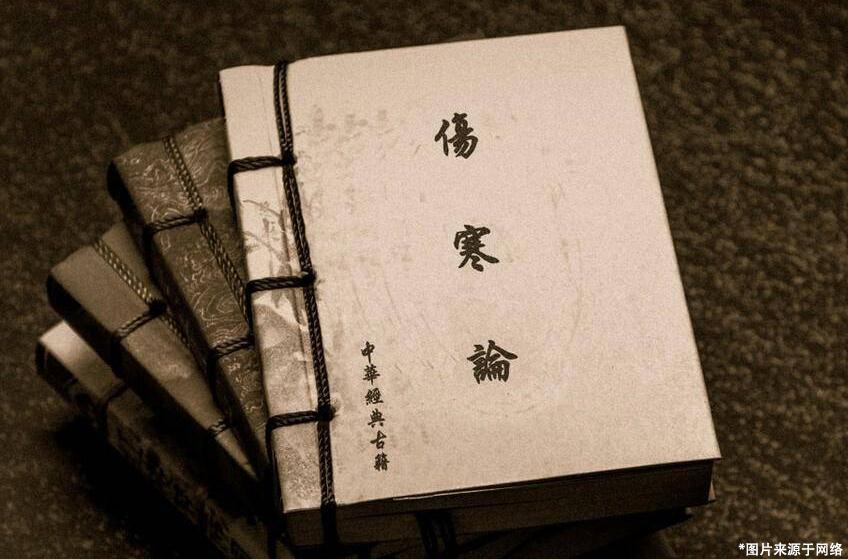 傷寒論
中華經典古籍
*图片来源于网络